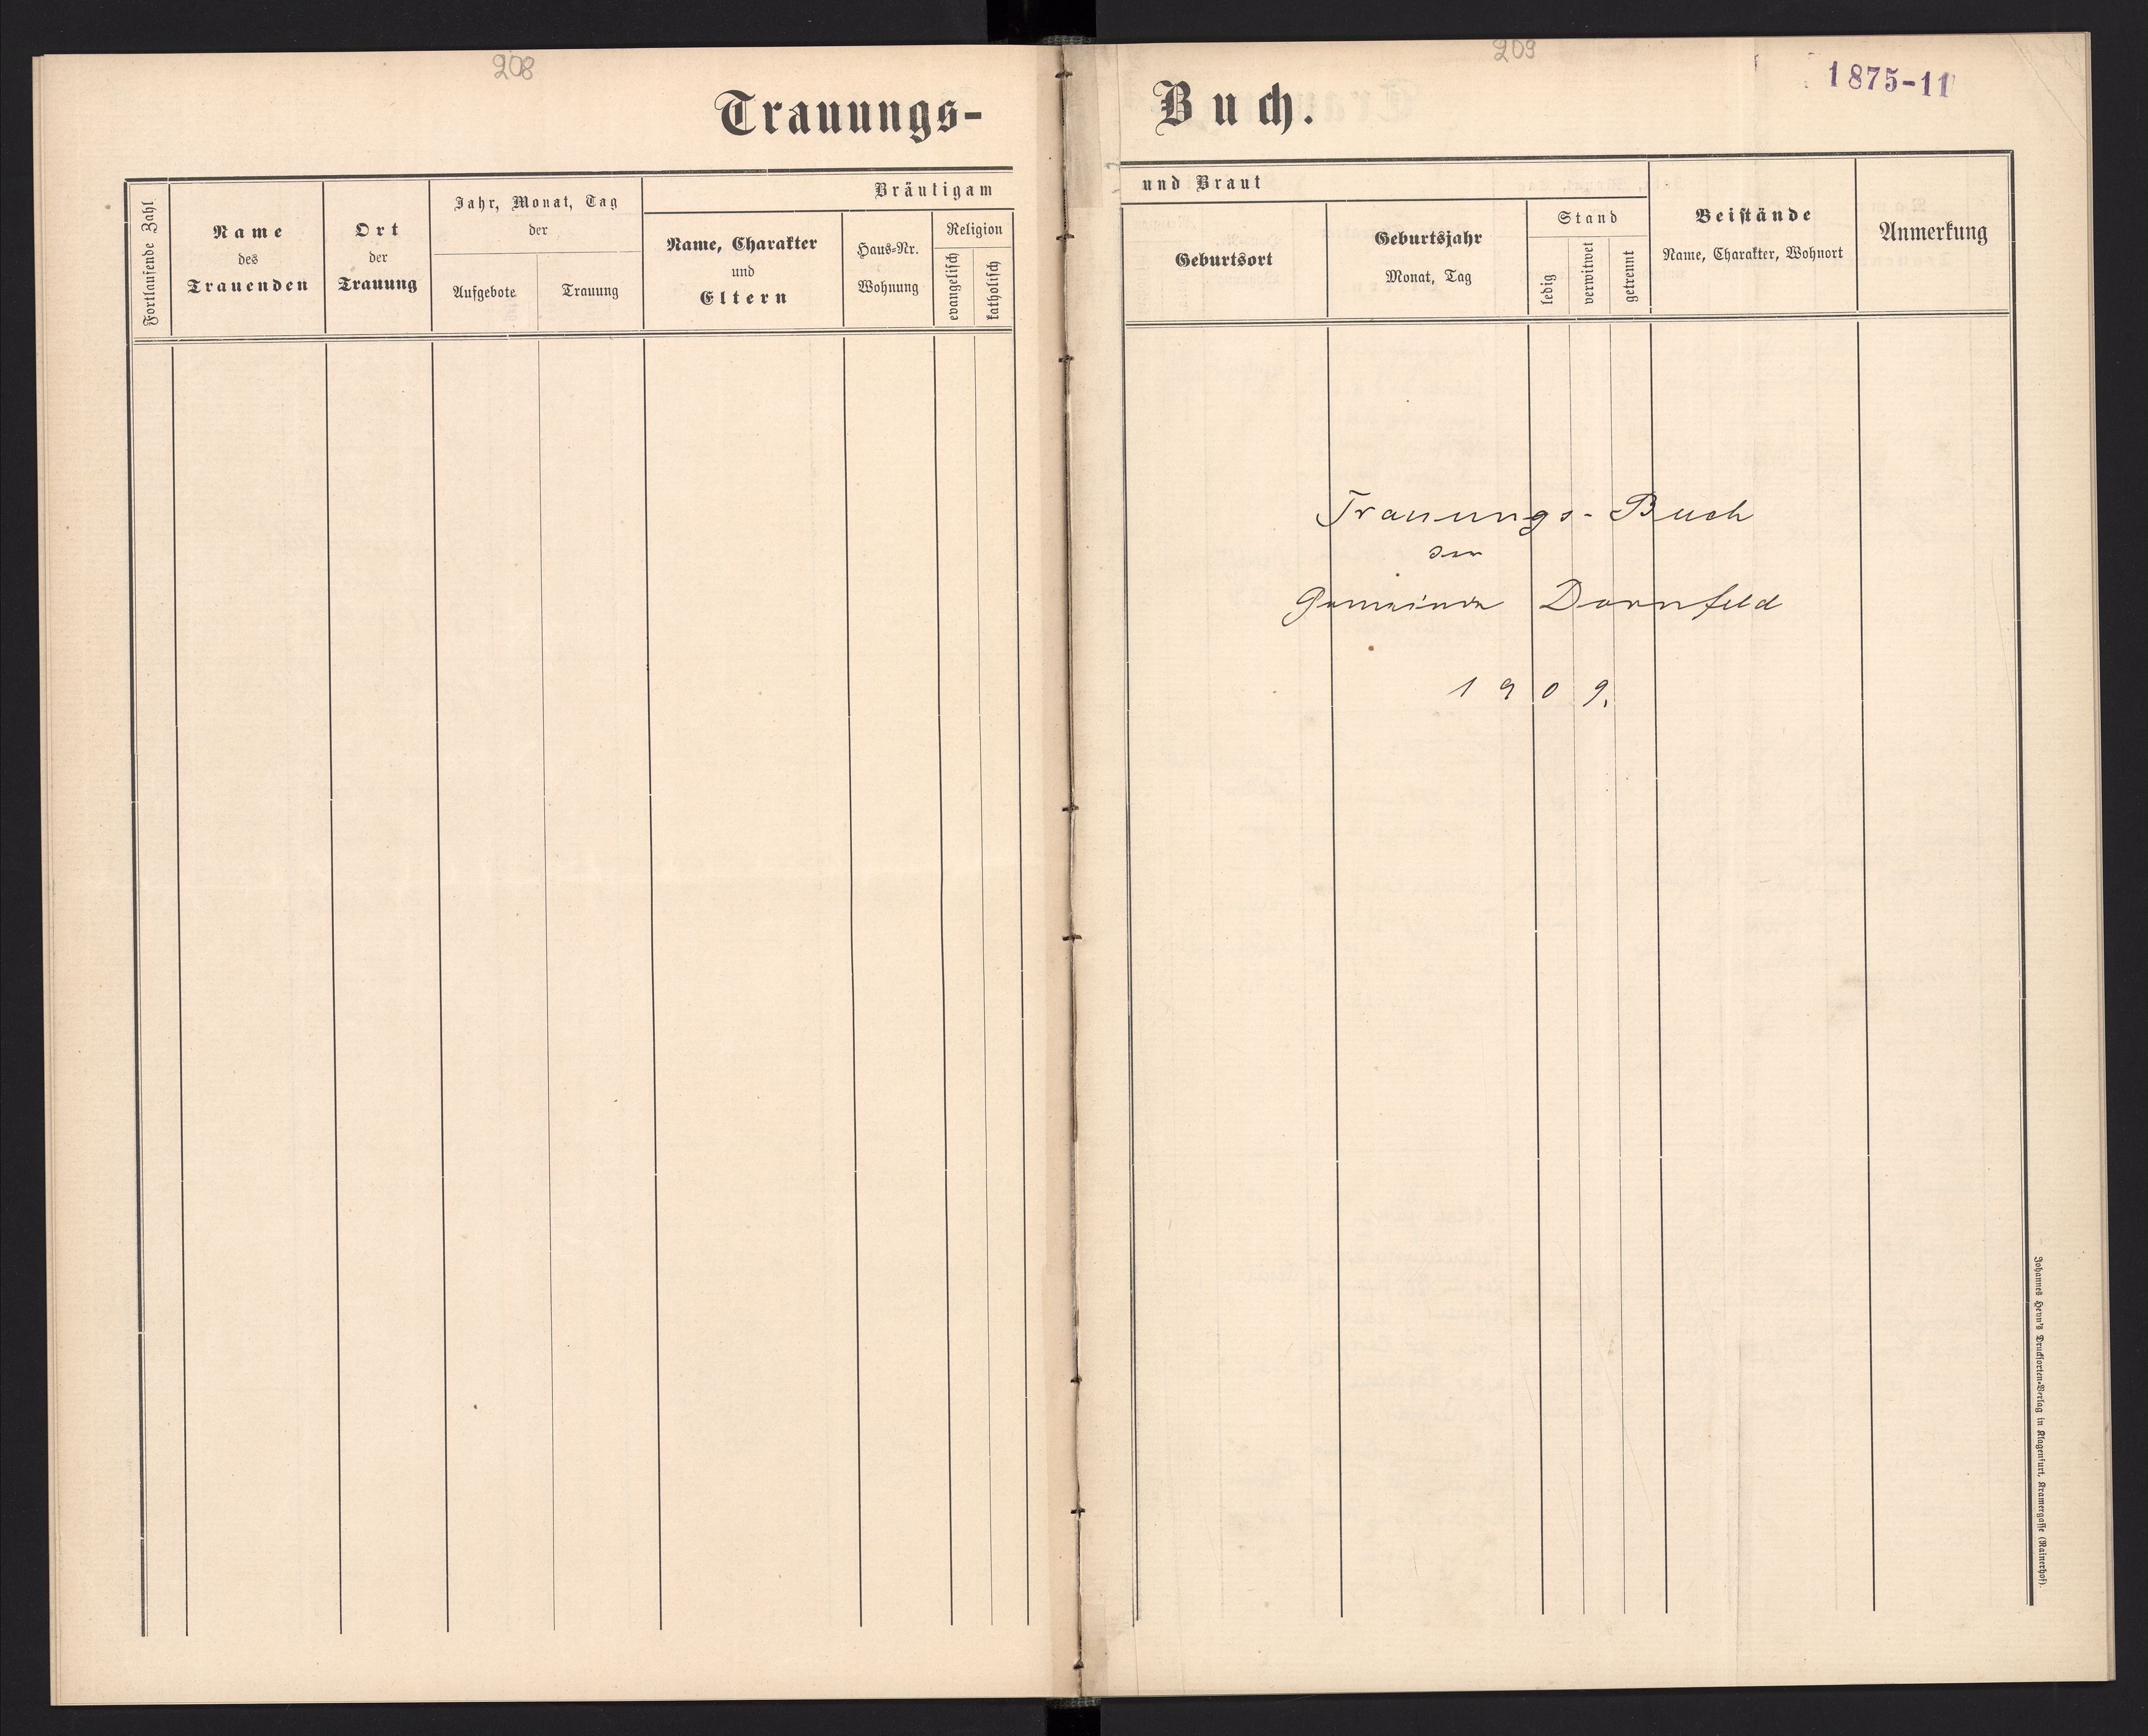 208
209
1875-11
Trauungs-
Buch.
Fortlaufende Zahl
Name
des
Trauenden
Ort
der
Trauung
Jahr, Monat, Tag
der
Aufgebote
Trauung
Bräutigam
Name, Charakter
und
Eltern
Haus-Nr.
Wohnung
Religion
evangelisch
katholisch
und Braut
Geburtsort
Geburtsjahr
Monat, Tag
Stand
ledig
verwitwet
getrennt
Beistände
Name, Charakter, Wohnort
Anmerkung
Trauungs-Buch
der
Gemeinde Dornfeld
1909.
Johannes Heyn's Drucksorten-Verlag in Klagenfurt, Kramergasse (Rainerhof).